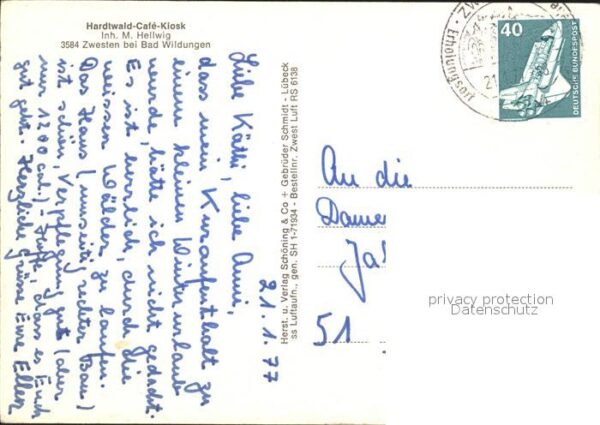 Hardtwald-Café-Kiosk
Inh. M. Hellwig
3584 Zwesten bei Bad Wildungen
21.1.77
Liebe Käthi, liebe Anni,
dass mein Kuraufenthalt zu
einem kleinen Winterurlaub
wurde, hätte ich nicht gedacht.
Es ist herrlich, durch die
weissen Wälder zu laufen.
Das Haus (umseitig, rechter Bau)
ist schön, Verpflegung gut (aber
nur 1200 cal.) - Hoffe, dass es Euch
gut geht. Herzliche Grüsse Eure Ellen
Herst. u. Verlag Schöning & Co + Gebrüder Schmidt - Lübeck
ss Luftaufn., gen. SH 1-71934 - Bestellnr. Zwest Luft RS 6138
Erholungsort
21
40
DEUTSCHE BUNDESPOST
An die
Dame
Ja
51
privacy protection
Datenschutz